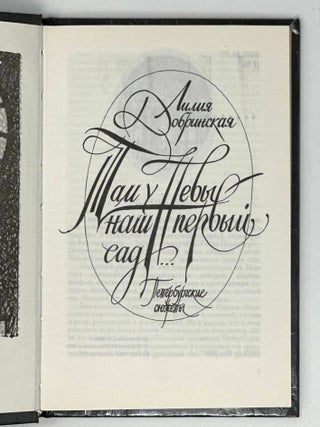 Лилия
Добринская
Там у Невы
наш первый
сад...
Петербургские
сюжеты